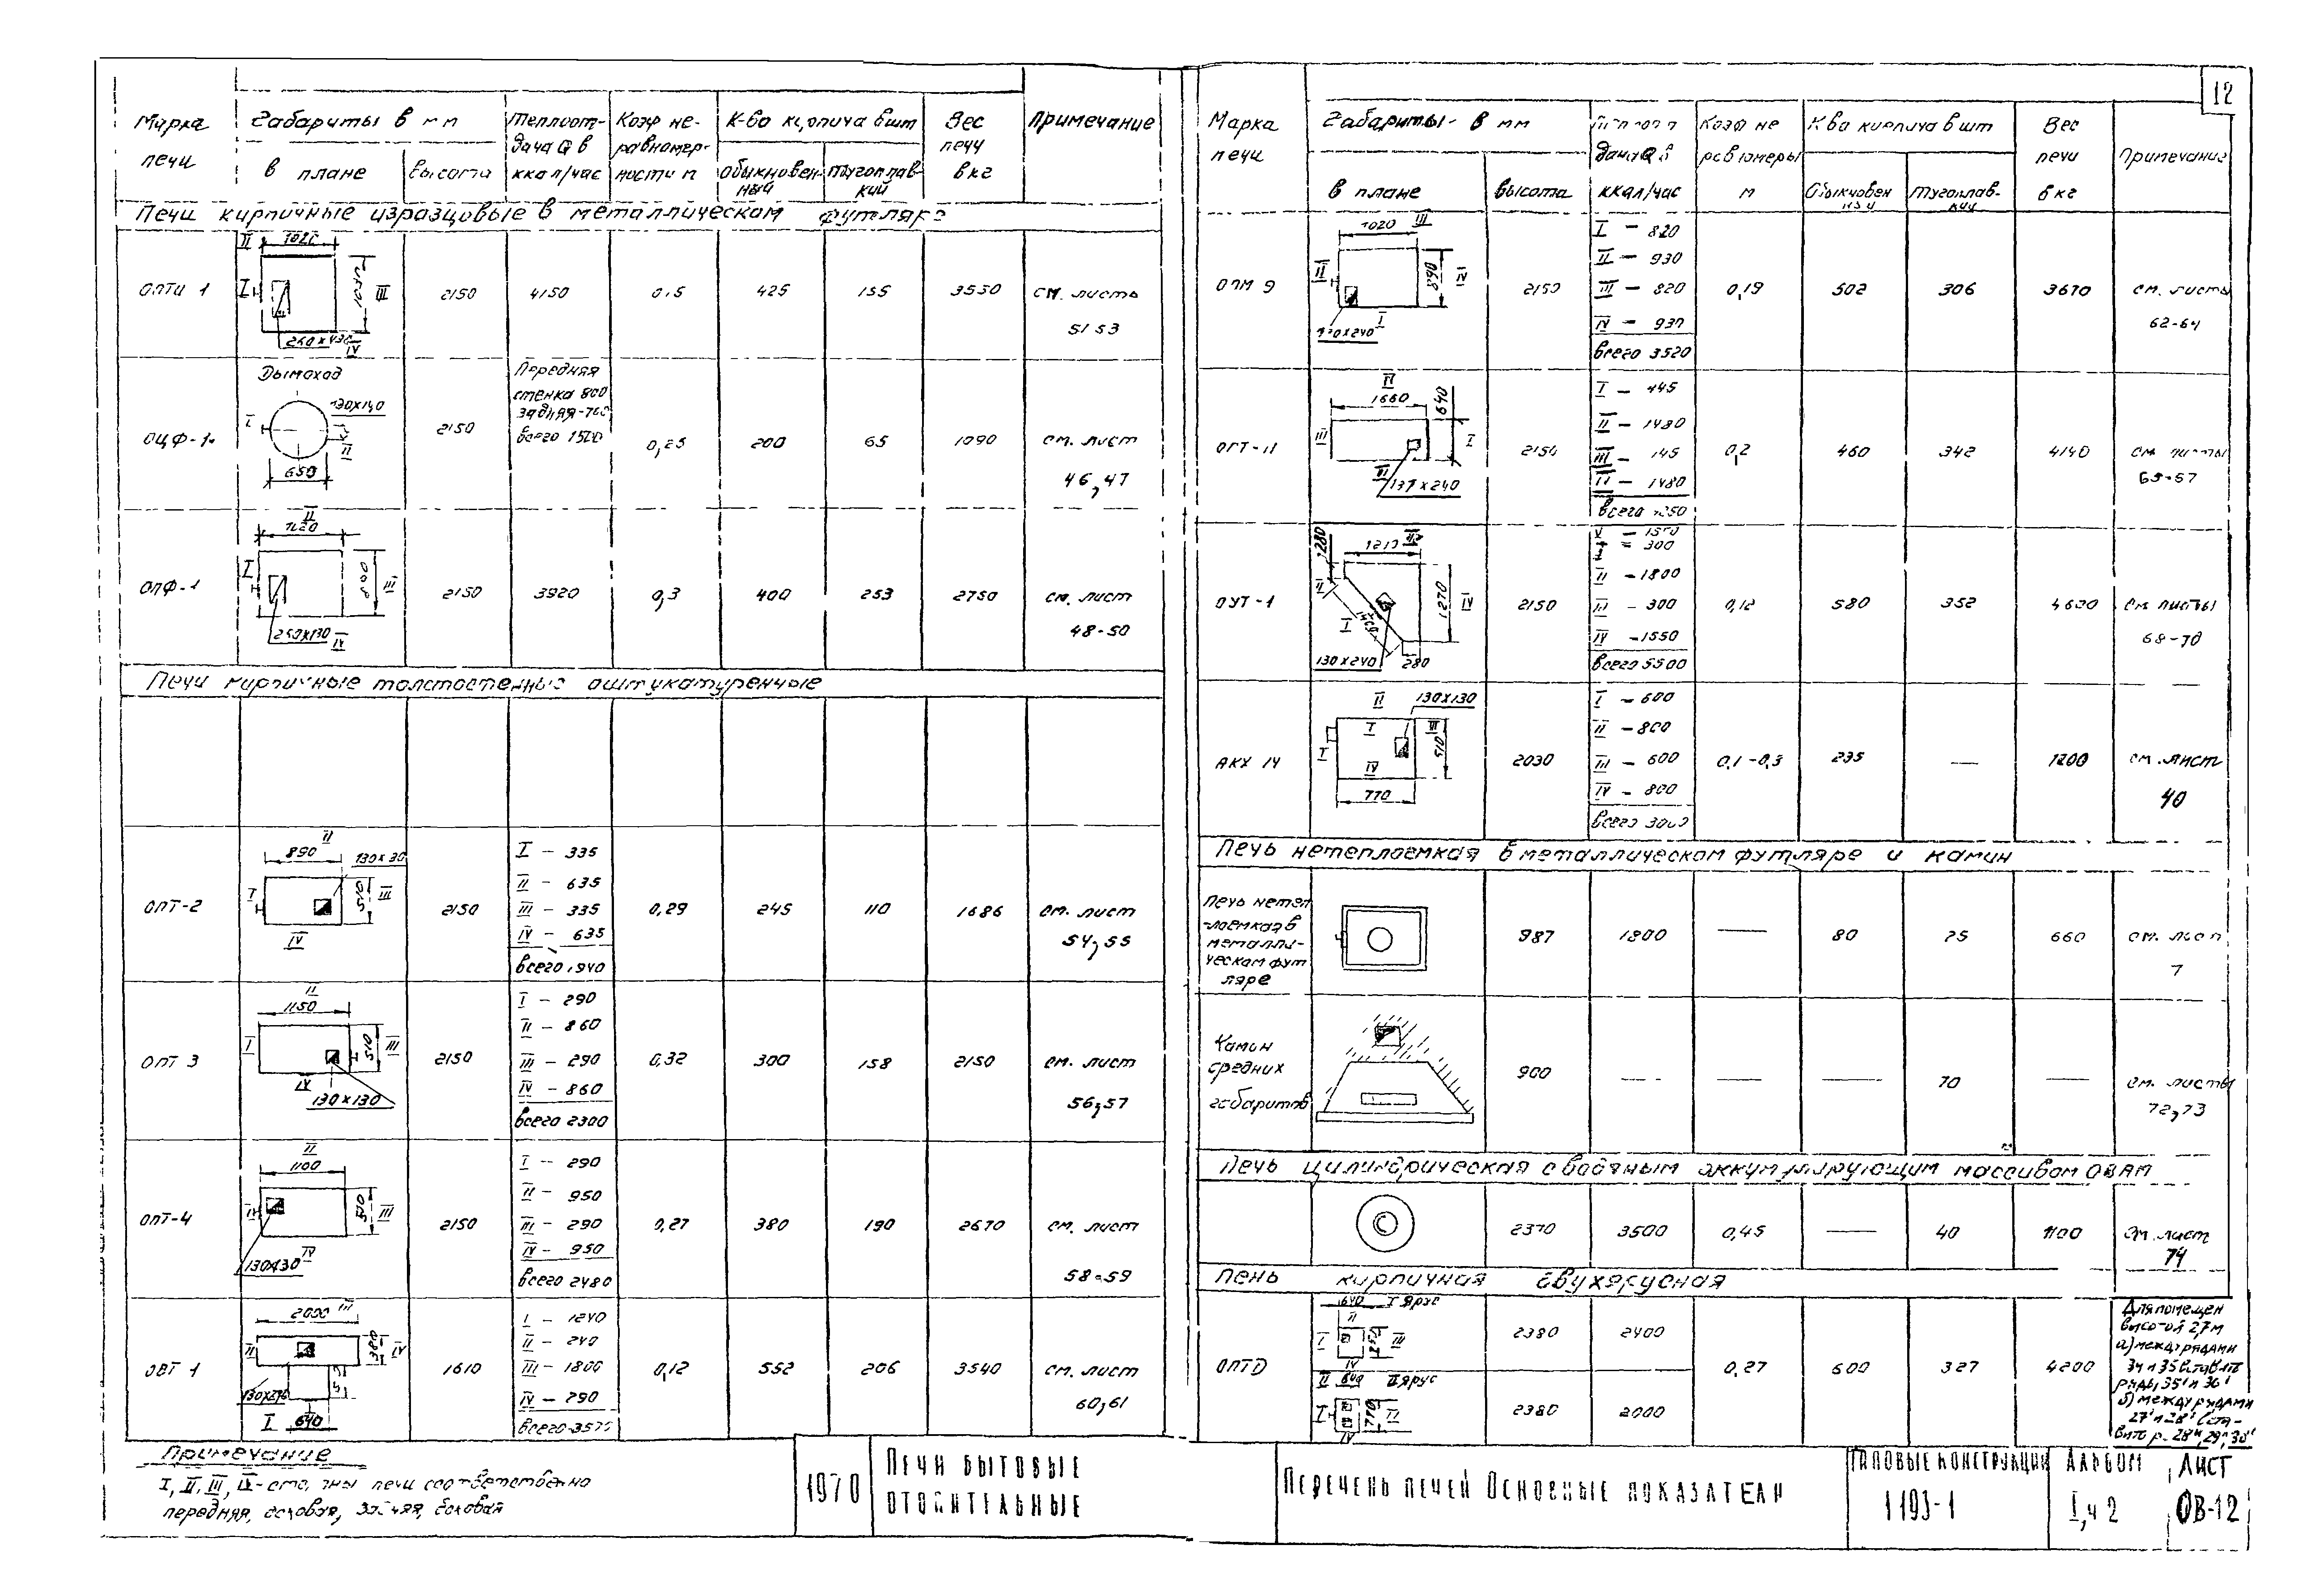 12
Марка печи
Габариты в мм
Теплоот-
дача Q в
ккал/час
Коэф не-
равномер-
ности м
К-во кирпича в шт
Вес
печи
в кг
Примечание
в плане
высота
Обыкновен-
ный
тугоплав-
кий
Печи кирпичные изразцовые в металлическом футляре
ОПТИ 1
II
I
III
IV
2150
4150
0,5
425
3530
см. листы
51 53
ОЦФ-1
Дымоход
130х140
I
II
650
2150
Передняя
стенка 800
задняя-700
всего 1500
0,25
200
65
1090
см. лист
46,47
ОПФ-1
II
I
III
IV
2150
3920
0,3
400
253
2750
см. лист
48-50
Печи кирпичные толстостенные оштукатуренные
ОПТ-2
II
890
I
510
III
IV
2150
I - 335
II - 635
III - 335
IV - 635
всего 1940
0,29
245
110
1686
см. лист
54,55
ОПТ 3
II
1150
I
510
III
IV
130х130
2150
I - 290
II - 860
III - 290
IV - 860
всего 2300
0,32
300
158
2150
см. лист
56,57
ОПТ-4
II
1100
I
III
IV
130х130
2150
I - 290
II - 950
III - 290
IV - 950
всего 2480
0,27
380
190
2670
см. лист
58-59
ОВТ 1
2000 III
II
380
IV
I
640
1610
I - 1240
II - 240
III - 1800
IV - 290
0,12
552
206
3540
см. лист
60,61
Примечание
I, II, III, IV- стены печи соответственно
передняя, боковая, задняя, боковая
Марка
печи
Габариты - в мм
дача Q в
ккал/час
Коэф не
равномеры
м
К во кирпича в шт
Вес
печи
в кг
Примечание
в плане
высота
Обыкновен
ный
тугоплав-
кий
ОПМ 9
1020 III
II
890
IV
I
2150
I - 820
II - 930
III - 820
IV - 930
всего 3520
0,19
502
306
3670
см. листы
62-64
ОПТ-11
IV
1660
640
III
I
2150
II - 1480
0,2
460
342
4140
см. листы
ОУТ-1
280
II
1270
IV
I
130х240
280
2150
II - 1800
III - 300
IV - 1550
всего 5500
0,12
580
352
см листы
68-70
АКХ 14
II
130х130
I
I
III
510
IV
770
2030
I - 600
II - 800
III - 600
IV - 800
0,1-0,3
235
—
1200
см. лист
40
Печь нетеплоемкая в металлическом футляре и камин
Печь нетеп
-лоемкая в
металли-
ческом фут
ляре
987
1800
—
80
25
660
см. лист
7
Камин
средних
габаритов
900
—
—
—
70
—
см. листы
72,73
Печь цилиндрическая с водяным аккумулирующим массивом ОВАМ
2370
3500
0,45
—
40
1100
см. лист
74
Печь кирпичная двухярусная
ОПТD
640 I Ярус
II
I
III
IV
2380
2400
II Ярус
I
IV
2380
2000
0,27
600
327
4200
Для помещен
высотой 2,7м
а) между рядами
34 и 35 вставить
ряды 35' и 36'
б) между рядами
1970
Печи бытовые
отопительные
Перечень печей Основные показатели
Типовые конструкции
1 193-1
Альбом
I, ч 2
Лист
ОВ-12